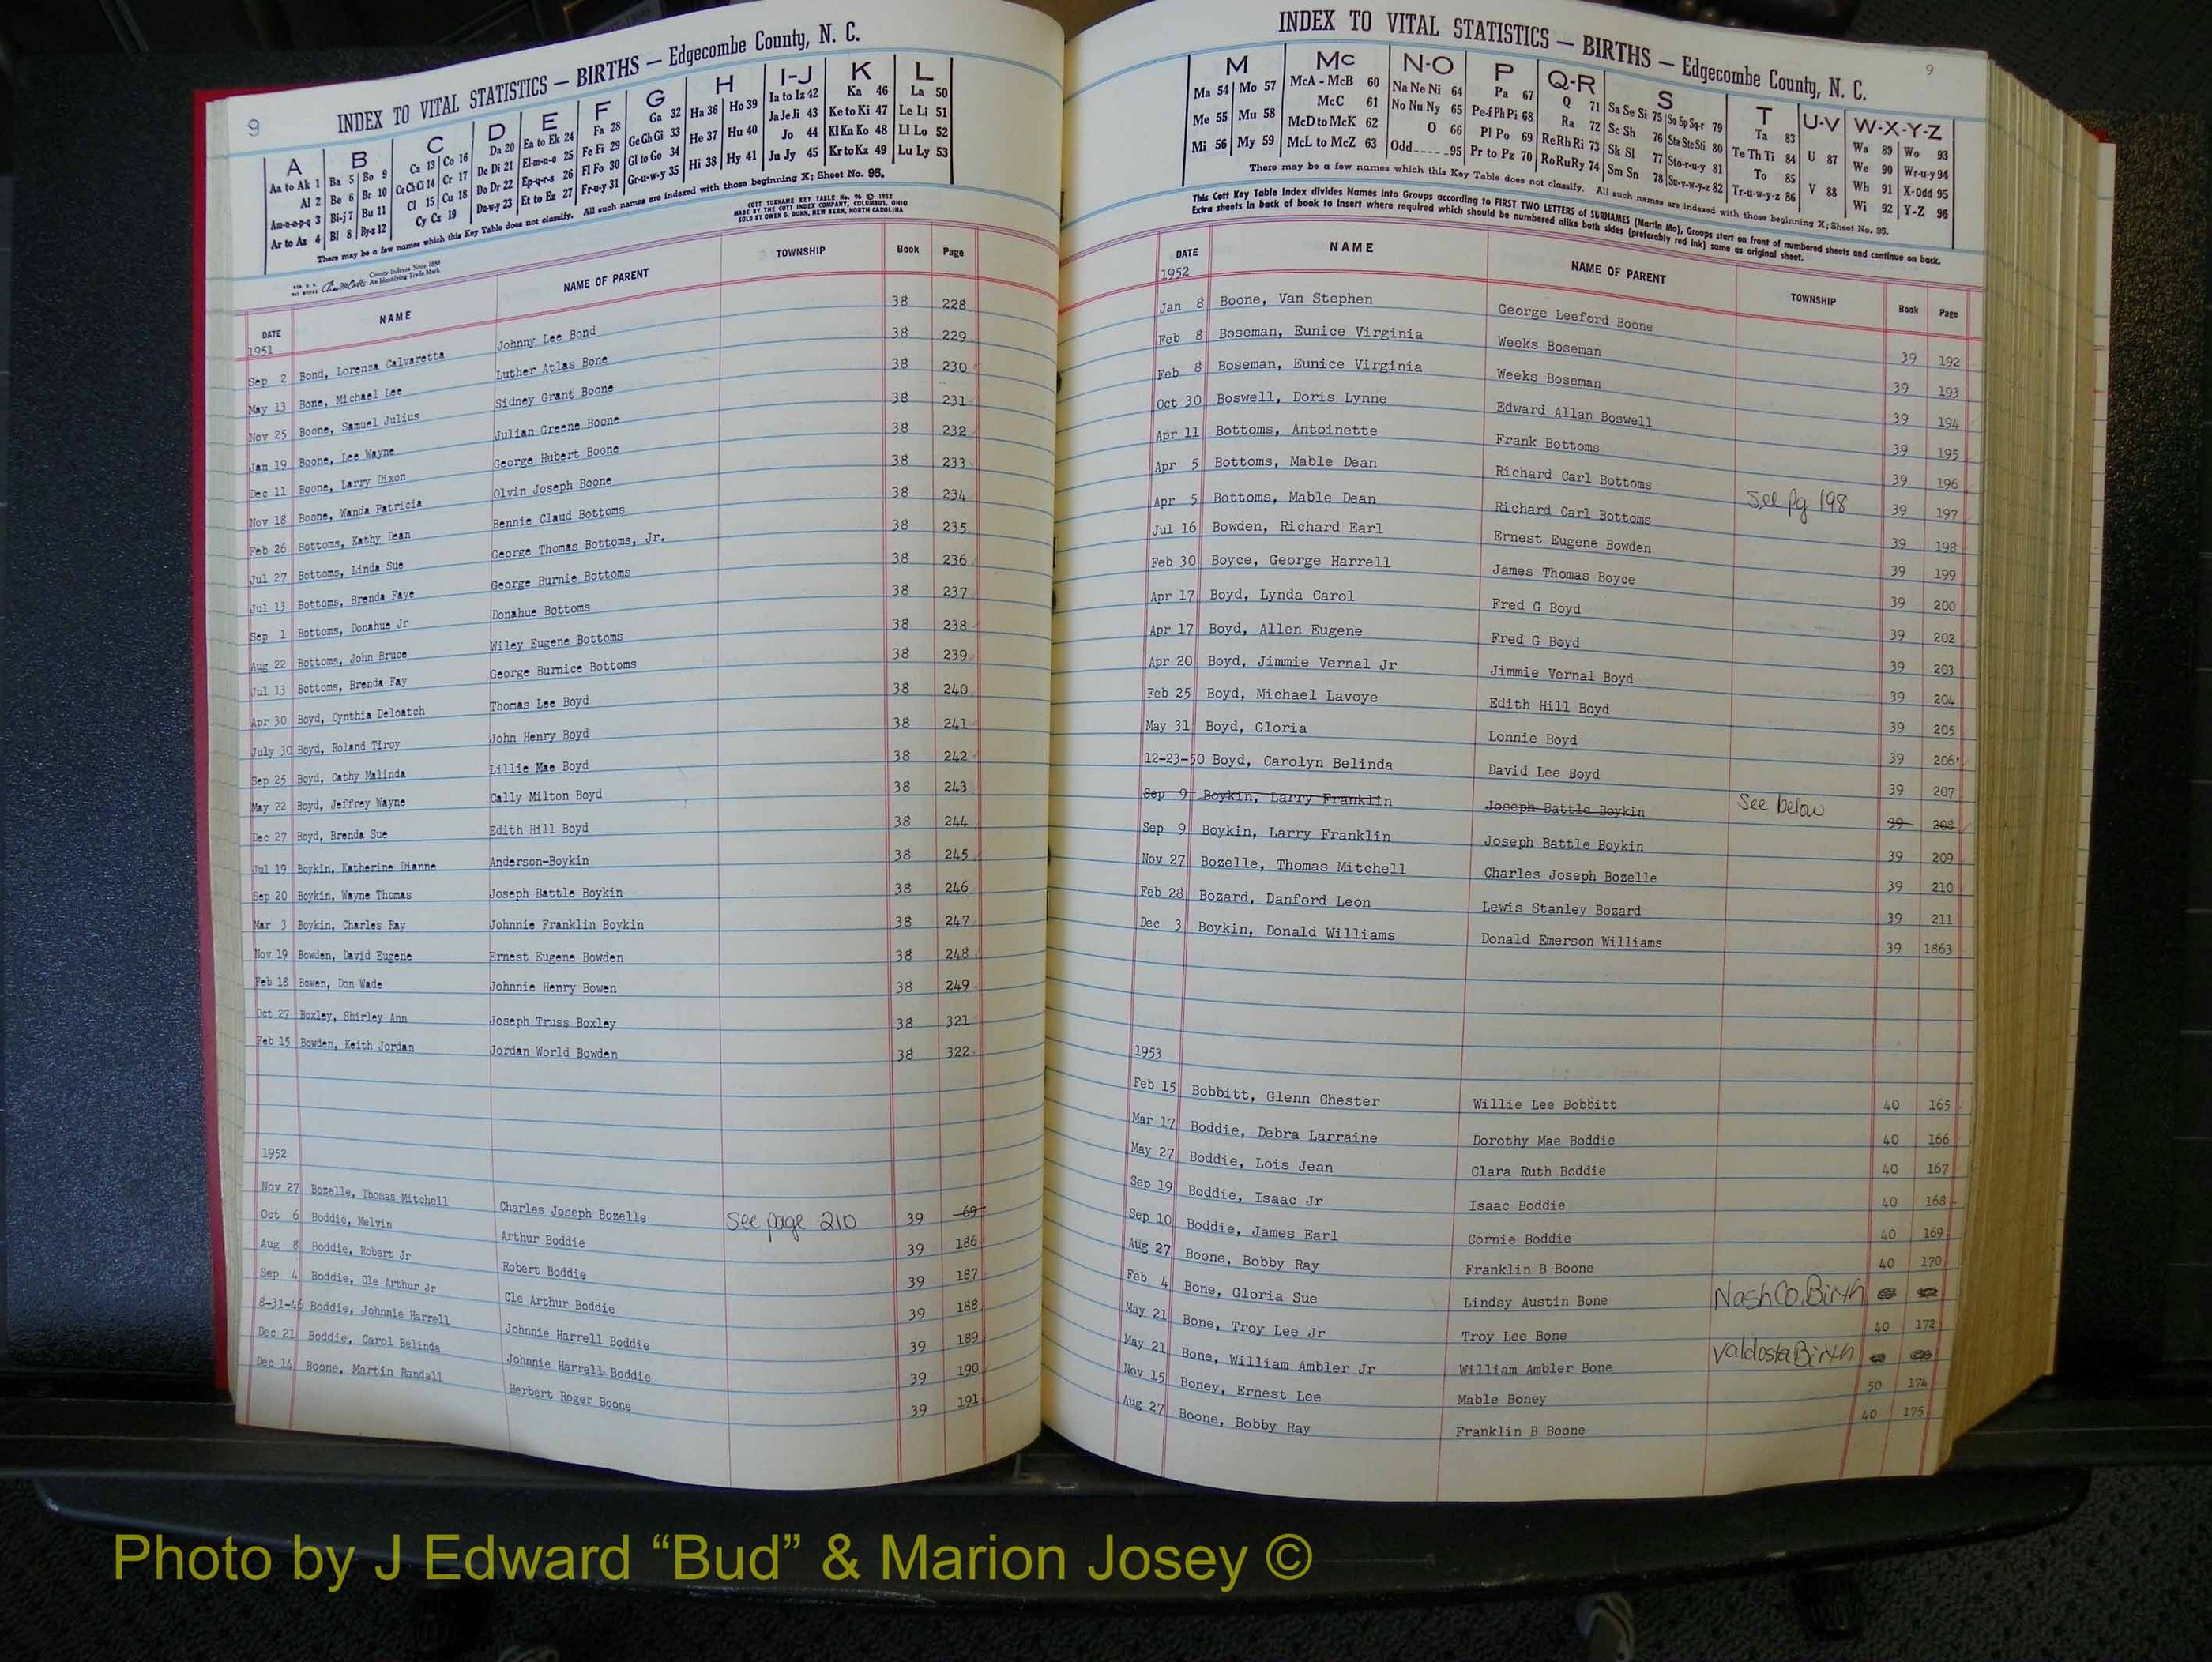 9
INDEX TO VITAL STATISTICS — BIRTHS — Edgecombe County, N. C.
A B C D E F G H I-J K L
Aa to Ak 1 Ba 5 Bo 9 Ca 13 Co 16 Da 20 Ea to Ek 24 Fa 28 Ga 32 Ha 36 Ho 39 Ia to Iz 42 Ka 46 La 50
Al 2 Be 6 Br 10 Ce Ch Ci 14 Cr 17 De Di 21 El-m-n-o 25 Fe Fi 29 Ge Gh Gi 33 He 37 Hu 40 Ja Je Ji 43 Ke to Ki 47 Le Li 51
Am-n-o-p-q 3 Bi-j 7 Bu 11 Cl 15 Cu 18 Do Dr 22 Ep-q-r-s 26 Fl Fo 30 Gl to Go 34 Hi 38 Hy 41 Jo 44 Kl Kn Ko 48 Ll Lo 52
Ar to Az 4 Bl 8 By-z 12 Cy Cz 19 Du-w-y 23 Et to Ez 27 Fr-u-y 31 Gr-u-w-y 35 Ju Jy 45 Kr to Kz 49 Lu Ly 53
There may be a few names which this Key Table does not classify. All such names are indexed with those beginning X; Sheet No. 95.
COTT SURNAME KEY TABLE No. 96 © 1952
MADE BY THE COTT INDEX COMPANY, COLUMBUS, OHIO
SOLD BY OWEN G. DUNN, NEW BERN, NORTH CAROLINA
County Indexes Since 1888
An Identifying Trade Mark
DATE NAME NAME OF PARENT TOWNSHIP Book Page
1951
Sep 2 Bond, Lorenza Calvaretta Johnny Lee Bond 38 228
May 13 Bone, Michael Lee Luther Atlas Bone 38 229
Nov 25 Boone, Samuel Julius Sidney Grant Boone 38 230
Jan 19 Boone, Lee Wayne Julian Greene Boone 38 231
Dec 11 Boone, Larry Dixon George Hubert Boone 38 232
Nov 18 Boone, Wanda Patricia Olvin Joseph Boone 38 233
Feb 26 Bottoms, Kathy Dean Bennie Claud Bottoms 38 234
Jul 27 Bottoms, Linda Sue George Thomas Bottoms, Jr. 38 235
Jul 13 Bottoms, Brenda Faye George Burnie Bottoms 38 236
Sep 1 Bottoms, Donahue Jr Donahue Bottoms 38 237
Aug 22 Bottoms, John Bruce Wiley Eugene Bottoms 38 238
Jul 13 Bottoms, Brenda Fay George Burnice Bottoms 38 239
Apr 30 Boyd, Cynthia Deloatch Thomas Lee Boyd 38 240
July 30 Boyd, Roland Tiroy John Henry Boyd 38 241
Sep 25 Boyd, Cathy Malinda Lillie Mae Boyd 38 242
May 22 Boyd, Jeffrey Wayne Cally Milton Boyd 38 243
Dec 27 Boyd, Brenda Sue Edith Hill Boyd 38 244
Jul 19 Boykin, Katherine Dianne Anderson-Boykin 38 245
Sep 20 Boykin, Wayne Thomas Joseph Battle Boykin 38 246
Mar 3 Boykin, Charles Ray Johnnie Franklin Boykin 38 247
Nov 19 Bowden, David Eugene Ernest Eugene Bowden 38 248
Feb 18 Bowen, Don Wade Johnnie Henry Bowen 38 249
Oct 27 Boxley, Shirley Ann Joseph Truss Boxley 38 321
Feb 15 Bowden, Keith Jordan Jordan World Bowden 38 322
1952
Nov 27 Bozelle, Thomas Mitchell Charles Joseph Bozelle See page 210 39 69
Oct 6 Boddie, Melvin Arthur Boddie 39 186
Aug 8 Boddie, Robert Jr Robert Boddie 39 187
Sep 4 Boddie, Cle Arthur Jr Cle Arthur Boddie 39 188
8-31-46 Boddie, Johnnie Harrell Johnnie Harrell Boddie 39 189
Dec 21 Boddie, Carol Belinda Johnnie Harrell Boddie 39 190
Dec 14 Boone, Martin Randall Herbert Roger Boone 39 191
9
INDEX TO VITAL STATISTICS — BIRTHS — Edgecombe County, N. C.
M Mc N-O P Q-R S T U-V W-X-Y-Z
Ma 54 Mo 57 McA - McB 60 Na Ne Ni 64 Pa 67 Q 71 Sa Se Si 75 So Sp Sq-r 79 Ta 83 U 87 Wa 89 Wo 93
Me 55 Mu 58 McC 61 No Nu Ny 65 Pe-f Ph Pi 68 Ra 72 Sc Sh 76 Sta Ste Sti 80 Te Th Ti 84 V 88 We 90 Wr-u-y 94
Mi 56 My 59 McD to McK 62 O 66 Pl Po 69 Re Rh Ri 73 Sk Sl 77 Sto-r-u-y 81 To 85 Wh 91 X-Odd 95
McL to McZ 63 Odd 95 Pr to Pz 70 Ro Ru Ry 74 Sm Sn 78 Su-v-w-y-z 82 Tr-u-w-y-z 86 Wi 92 Y-Z 96
There may be a few names which this Key Table does not classify. All such names are indexed with those beginning X; Sheet No. 95.
This Cott Key Table Index divides Names into Groups according to FIRST TWO LETTERS of SURNAMES (Martin Ma), Groups start on front of numbered sheets and continue on back.
Extra sheets in back of book to insert where required which should be numbered alike both sides (preferably red ink) same as original sheet.
DATE NAME NAME OF PARENT TOWNSHIP Book Page
1952
Jan 8 Boone, Van Stephen George Leeford Boone 39 192
Feb 8 Boseman, Eunice Virginia Weeks Boseman 39 193
Feb 8 Boseman, Eunice Virginia Weeks Boseman 39 194
Oct 30 Boswell, Doris Lynne Edward Allan Boswell 39 195
Apr 11 Bottoms, Antoinette Frank Bottoms 39 196
Apr 5 Bottoms, Mable Dean Richard Carl Bottoms See pg 198 39 197
Apr 5 Bottoms, Mable Dean Richard Carl Bottoms 39 198
Jul 16 Bowden, Richard Earl Ernest Eugene Bowden 39 199
Feb 30 Boyce, George Harrell James Thomas Boyce 39 200
Apr 17 Boyd, Lynda Carol Fred G Boyd 39 202
Apr 17 Boyd, Allen Eugene Fred G Boyd 39 203
Apr 20 Boyd, Jimmie Vernal Jr Jimmie Vernal Boyd 39 204
Feb 25 Boyd, Michael Lavoye Edith Hill Boyd 39 205
May 31 Boyd, Gloria Lonnie Boyd 39 206
12-23-50 Boyd, Carolyn Belinda David Lee Boyd 39 207
Sep 9 Boykin, Larry Franklin Joseph Battle Boykin See below 39 208
Sep 9 Boykin, Larry Franklin Joseph Battle Boykin 39 209
Nov 27 Bozelle, Thomas Mitchell Charles Joseph Bozelle 39 210
Feb 28 Bozard, Danford Leon Lewis Stanley Bozard 39 211
Dec 3 Boykin, Donald Williams Donald Emerson Williams 39 1863
1953
Feb 15 Bobbitt, Glenn Chester Willie Lee Bobbitt 40 165
Mar 17 Boddie, Debra Larraine Dorothy Mae Boddie 40 166
May 27 Boddie, Lois Jean Clara Ruth Boddie 40 167
Sep 19 Boddie, Isaac Jr Isaac Boddie 40 168
Sep 10 Boddie, James Earl Cornie Boddie 40 169
Aug 27 Boone, Bobby Ray Franklin B Boone 40 170
Feb 4 Bone, Gloria Sue Lindsy Austin Bone Nash Co. Birth
May 21 Bone, Troy Lee Jr Troy Lee Bone 40 172
May 21 Bone, William Ambler Jr William Ambler Bone Valdosta Birth
Nov 15 Boney, Ernest Lee Mable Boney 50 174
Aug 27 Boone, Bobby Ray Franklin B Boone 40 175
Photo by J Edward “Bud” & Marion Josey ©